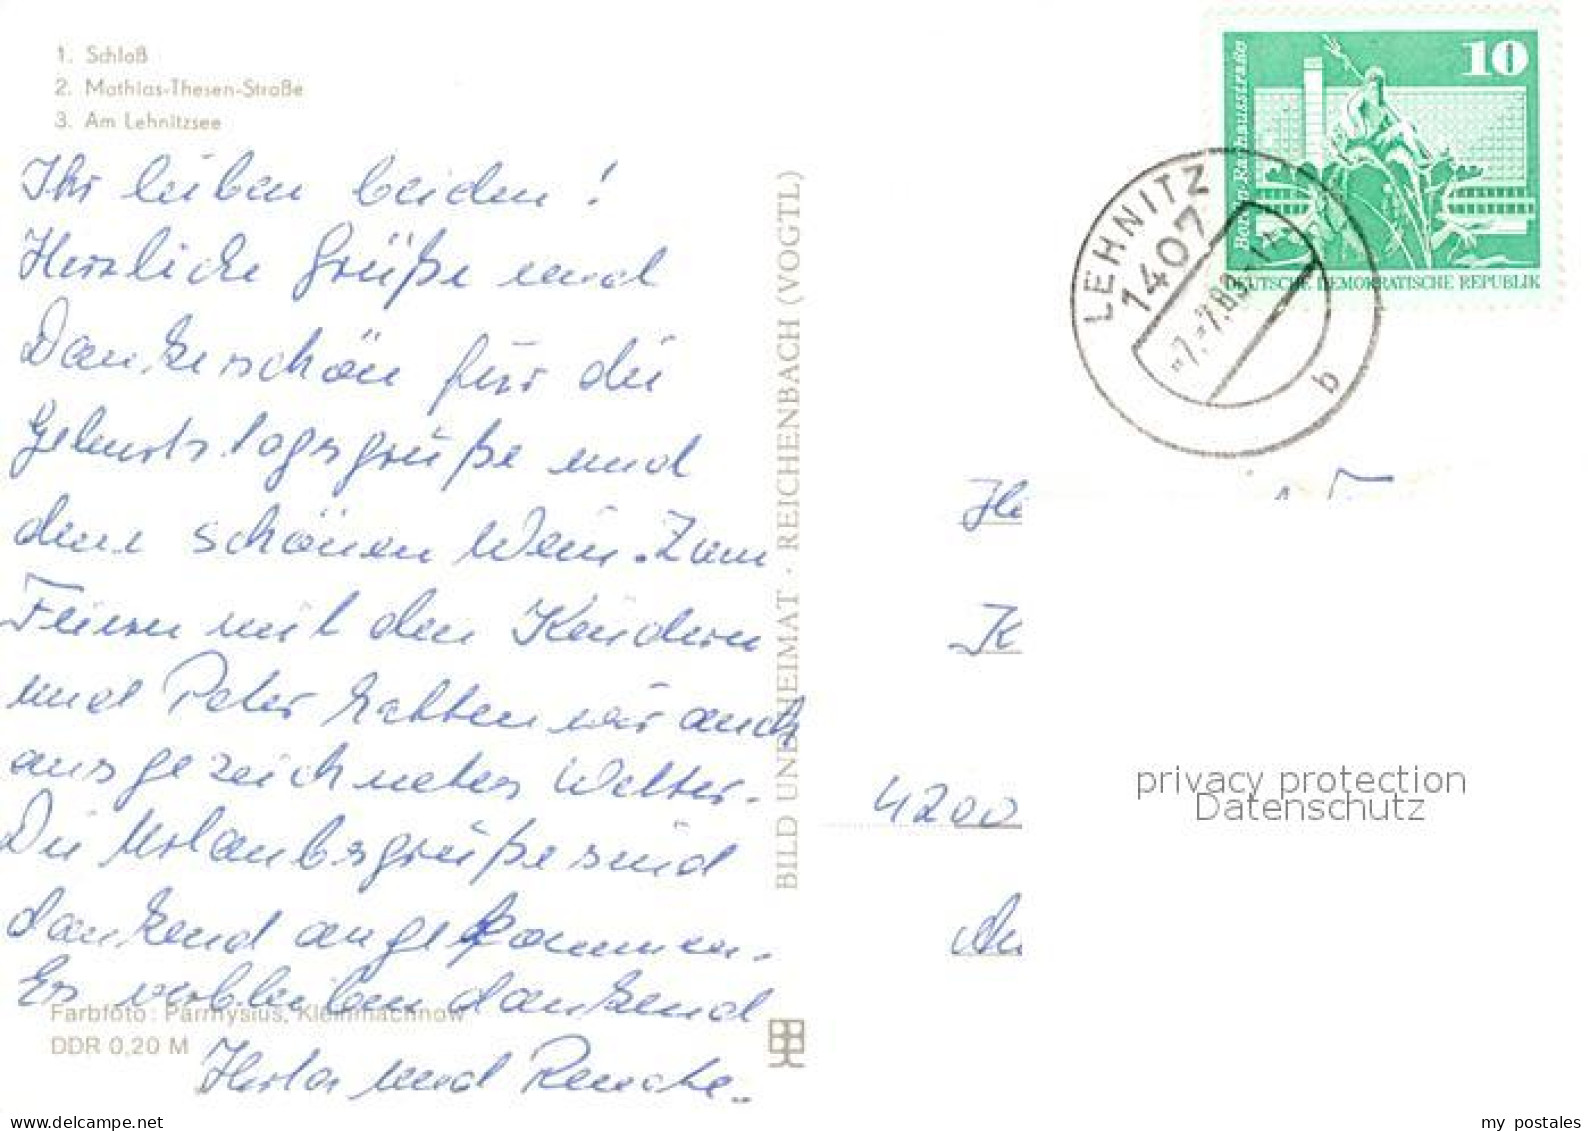 1. Schloß
2. Mathias-Thesen-Straße
3. Am Lehnitzsee
Ihr lieben beiden!
Herzliche Grüße und
Dankeschön für die
Geburtstagsgrüße und
den schönen Wein. Zum
Feiern mit den Kindern
und Peter hatten wir auch
ausgezeichnetes Wetter.
Die Urlaubsgrüße sind
dankend angekommen.
Es verbleiben dankend
Herta und
Farbfoto: Parmysius, Kleinmachnow
DDR 0,20 M
BILD UND HEIMAT · REICHENBACH (VOGTL)
10
DEUTSCHE DEMOKRATISCHE REPUBLIK
LEHNITZ
1407
b
4200
privacy protection
Datenschutz
my postales